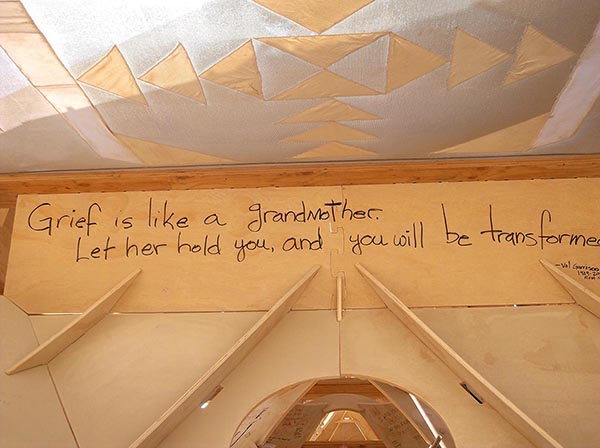 Grief is like a grandmother.
Let her hold you, and you will be transforme